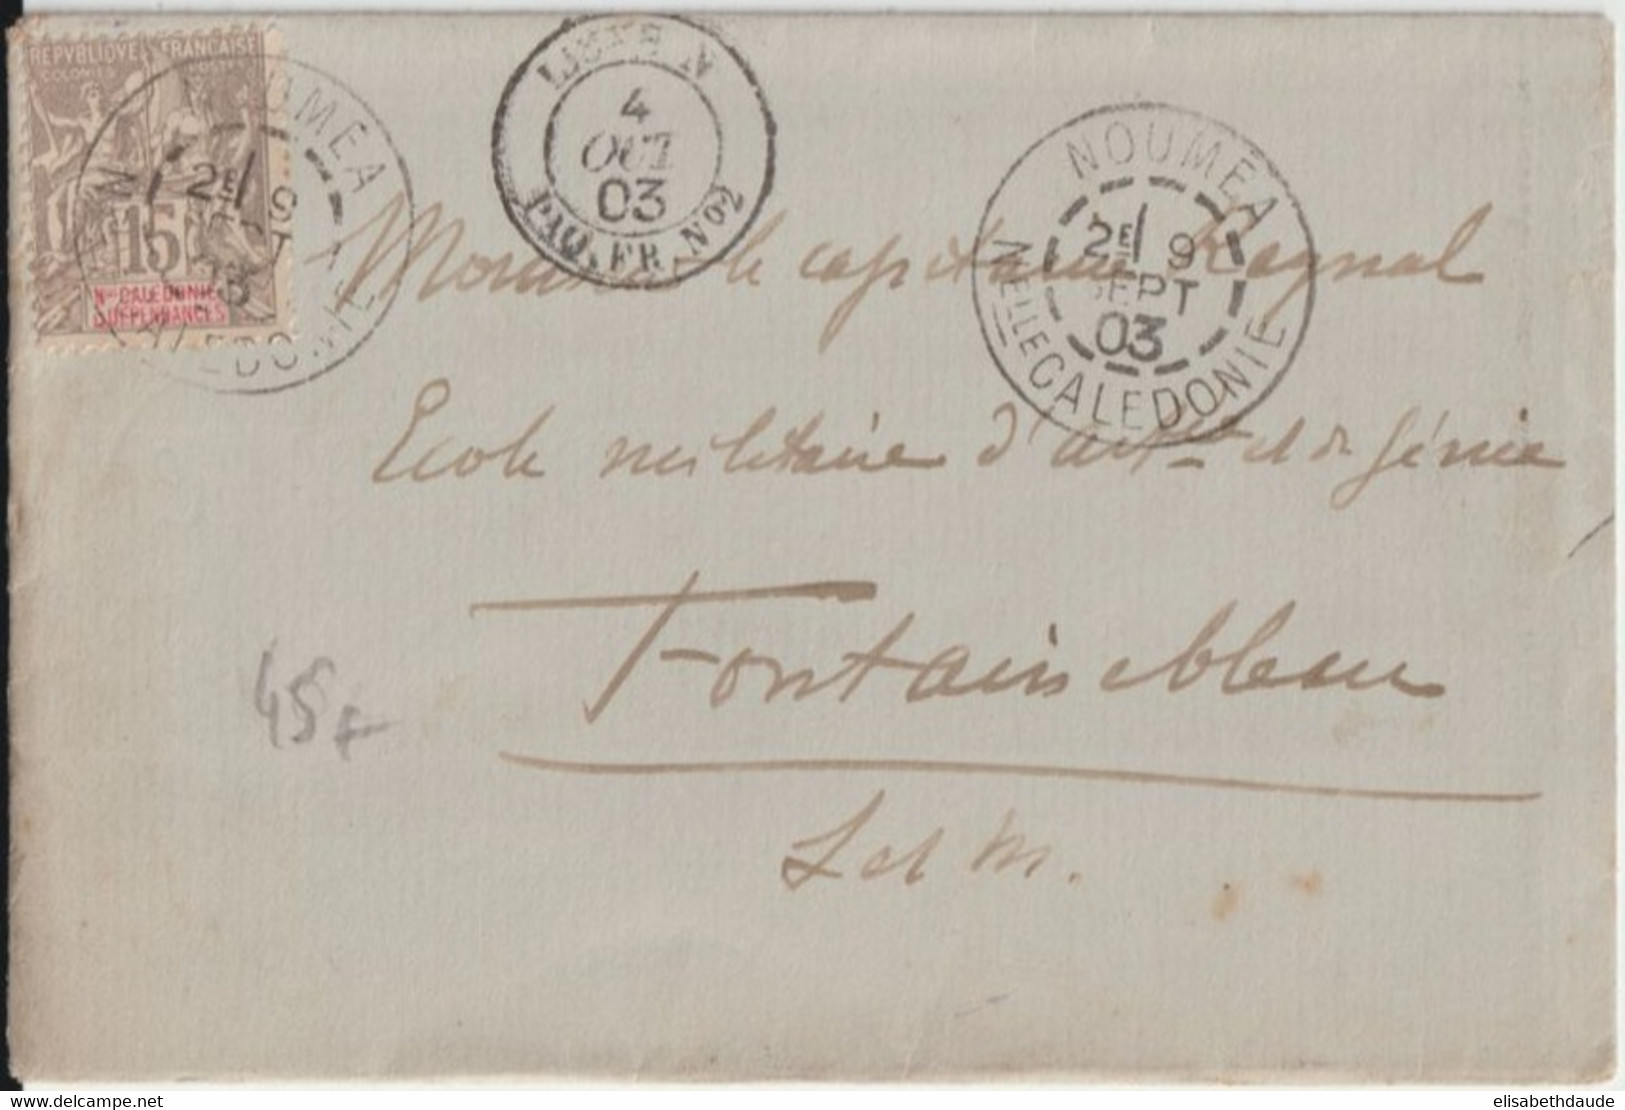 REPUBLIQUE FRANÇAISE
COLONIES POSTES
15
Nlle CALEDONIE
& DEPENDANCES
NOUMEA
2E/ 9
SEPT
03
Nelle CALEDONIE
LIGNE N
4
OCT
03
PAQ. FR. No 2
NOUMEA
2E/ 9
SEPT
03
NELLE CALEDONIE
le capitaine Raynal
Ecole militaire d'artie et de génie
Fontainebleau
S et M.
45
delcampe.net
elisabethdaude